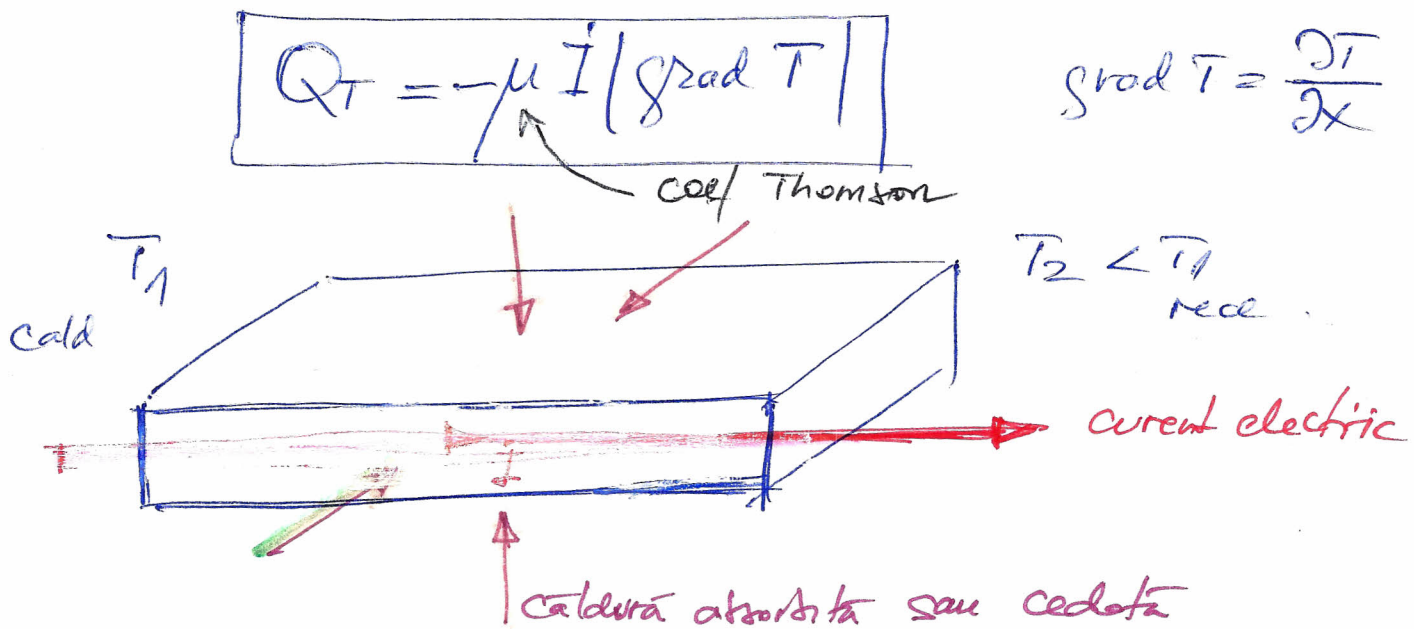 Q_T = -μ I |grad T|
grad T = ∂T/∂x
coef Thomson
T₁
cald
T₂ < T₁
rece
curent electric
I
căldură absorbită sau cedată